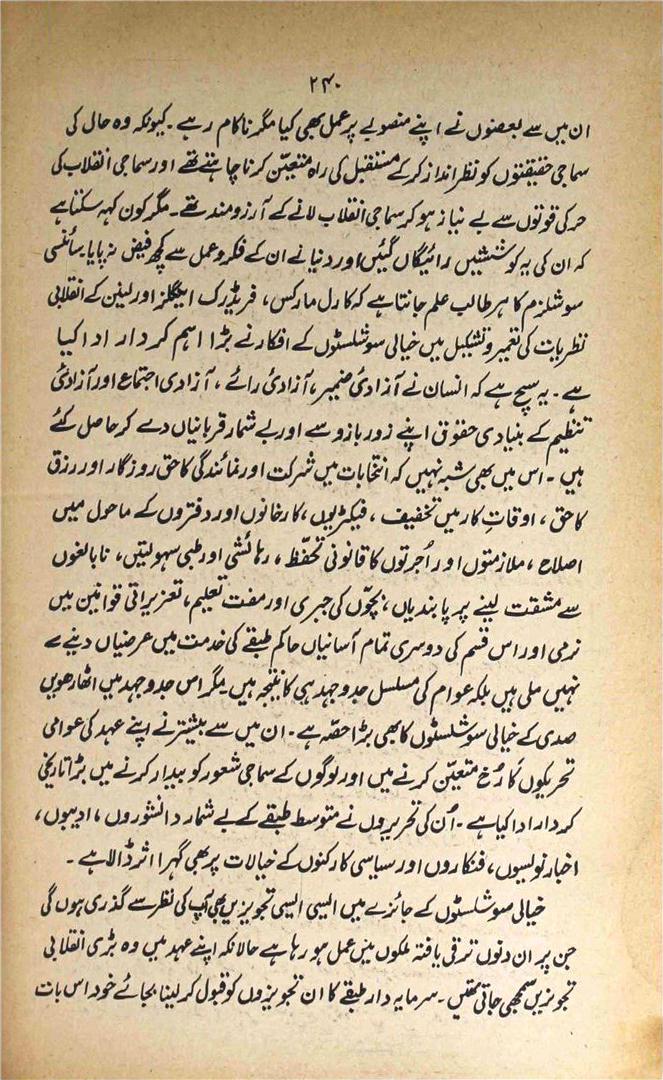 ۲۴۰
ان میں سے بعضوں نے اپنے منصوبے پر عمل بھی کیا مگر ناکام رہے۔ کیونکہ وہ حال کی
سماجی حقیقتوں کو نظر انداز کر کے مستقبل کی راہ متعیّن کرنا چاہتے تھے اور سماجی انقلاب کی
حرکی قوتوں سے بے نیاز ہو کر سماجی انقلاب لانے کے آرزومند تھے۔ مگر کون کہہ سکتا ہے
کہ ان کی یہ کوششیں رائیگاں گئیں اور دنیا نے ان کے فکر و عمل سے کچھ فیض نہ پایا۔ سائنسی
سوشلزم کا ہر طالب علم جانتا ہے کہ کارل مارکس، فریڈرک اینگلز اور لینن کے انقلابی
نظریات کی تعمیر و تشکیل میں خیالی سوشلسٹوں کے افکار نے بڑا اہم کردار ادا کیا
ہے۔ یہ سچ ہے کہ انسان نے آزادیٔ ضمیر، آزادیٔ رائے، آزادیٔ اجتماع اور آزادیٔ
تنظیم کے بنیادی حقوق اپنے زور بازو سے اور بے شمار قربانیاں دے کر حاصل کئے
ہیں۔ اس میں بھی شبہ نہیں کہ انتخابات میں شرکت اور نمائندگی کا حق روزگار اور رزق
کا حق، اوقاتِ کار میں تخفیف، فیکٹریوں، کارخانوں اور دفتروں کے ماحول میں
اصلاح، ملازمتوں اور اُجرتوں کا قانونی تحفّظ، رہائشی اور طبی سہولتیں، نابالغوں
سے مشقت لینے پر پابندیاں، بچّوں کی جبری اور مفت تعلیم، تعزیراتی قوانین میں
نرمی اور اس قسم کی دوسری تمام آسانیاں حاکم طبقے کی خدمت میں عرضیاں دینے سے
نہیں ملی ہیں بلکہ عوام کی مسلسل جدوجہد ہی کا نتیجہ ہیں مگر اس جدوجہد میں اٹھارھویں
صدی کے خیالی سوشلسٹوں کا بھی بڑا حصّہ ہے۔ ان میں سے بیشتر نے اپنے عہد کی عوامی
تحریکوں کا رُخ متعیّن کرنے میں اور لوگوں کے سماجی شعور کو بیدار کرنے میں بڑا تاریخی
کردار ادا کیا ہے۔ اُن کی تحریروں نے متوسط طبقے کے بے شمار دانشوروں، ادیبوں،
اخبار نویسوں، فنکاروں اور سیاسی کارکنوں کے خیالات پر بھی گہرا اثر ڈالا ہے۔
خیالی سوشلسٹوں کے جائزے میں ایسی ایسی تجویزیں بھی آپ کی نظر سے گذری ہوں گی
جن پر ان دنوں ترقی یافتہ ملکوں میں عمل ہو رہا ہے حالانکہ اپنے عہد میں وہ بڑی انقلابی
تجویزیں سمجھی جاتی تھیں۔ سرمایہ دار طبقے کا ان تجویزوں کو قبول کر لینا بجائے خود اس بات